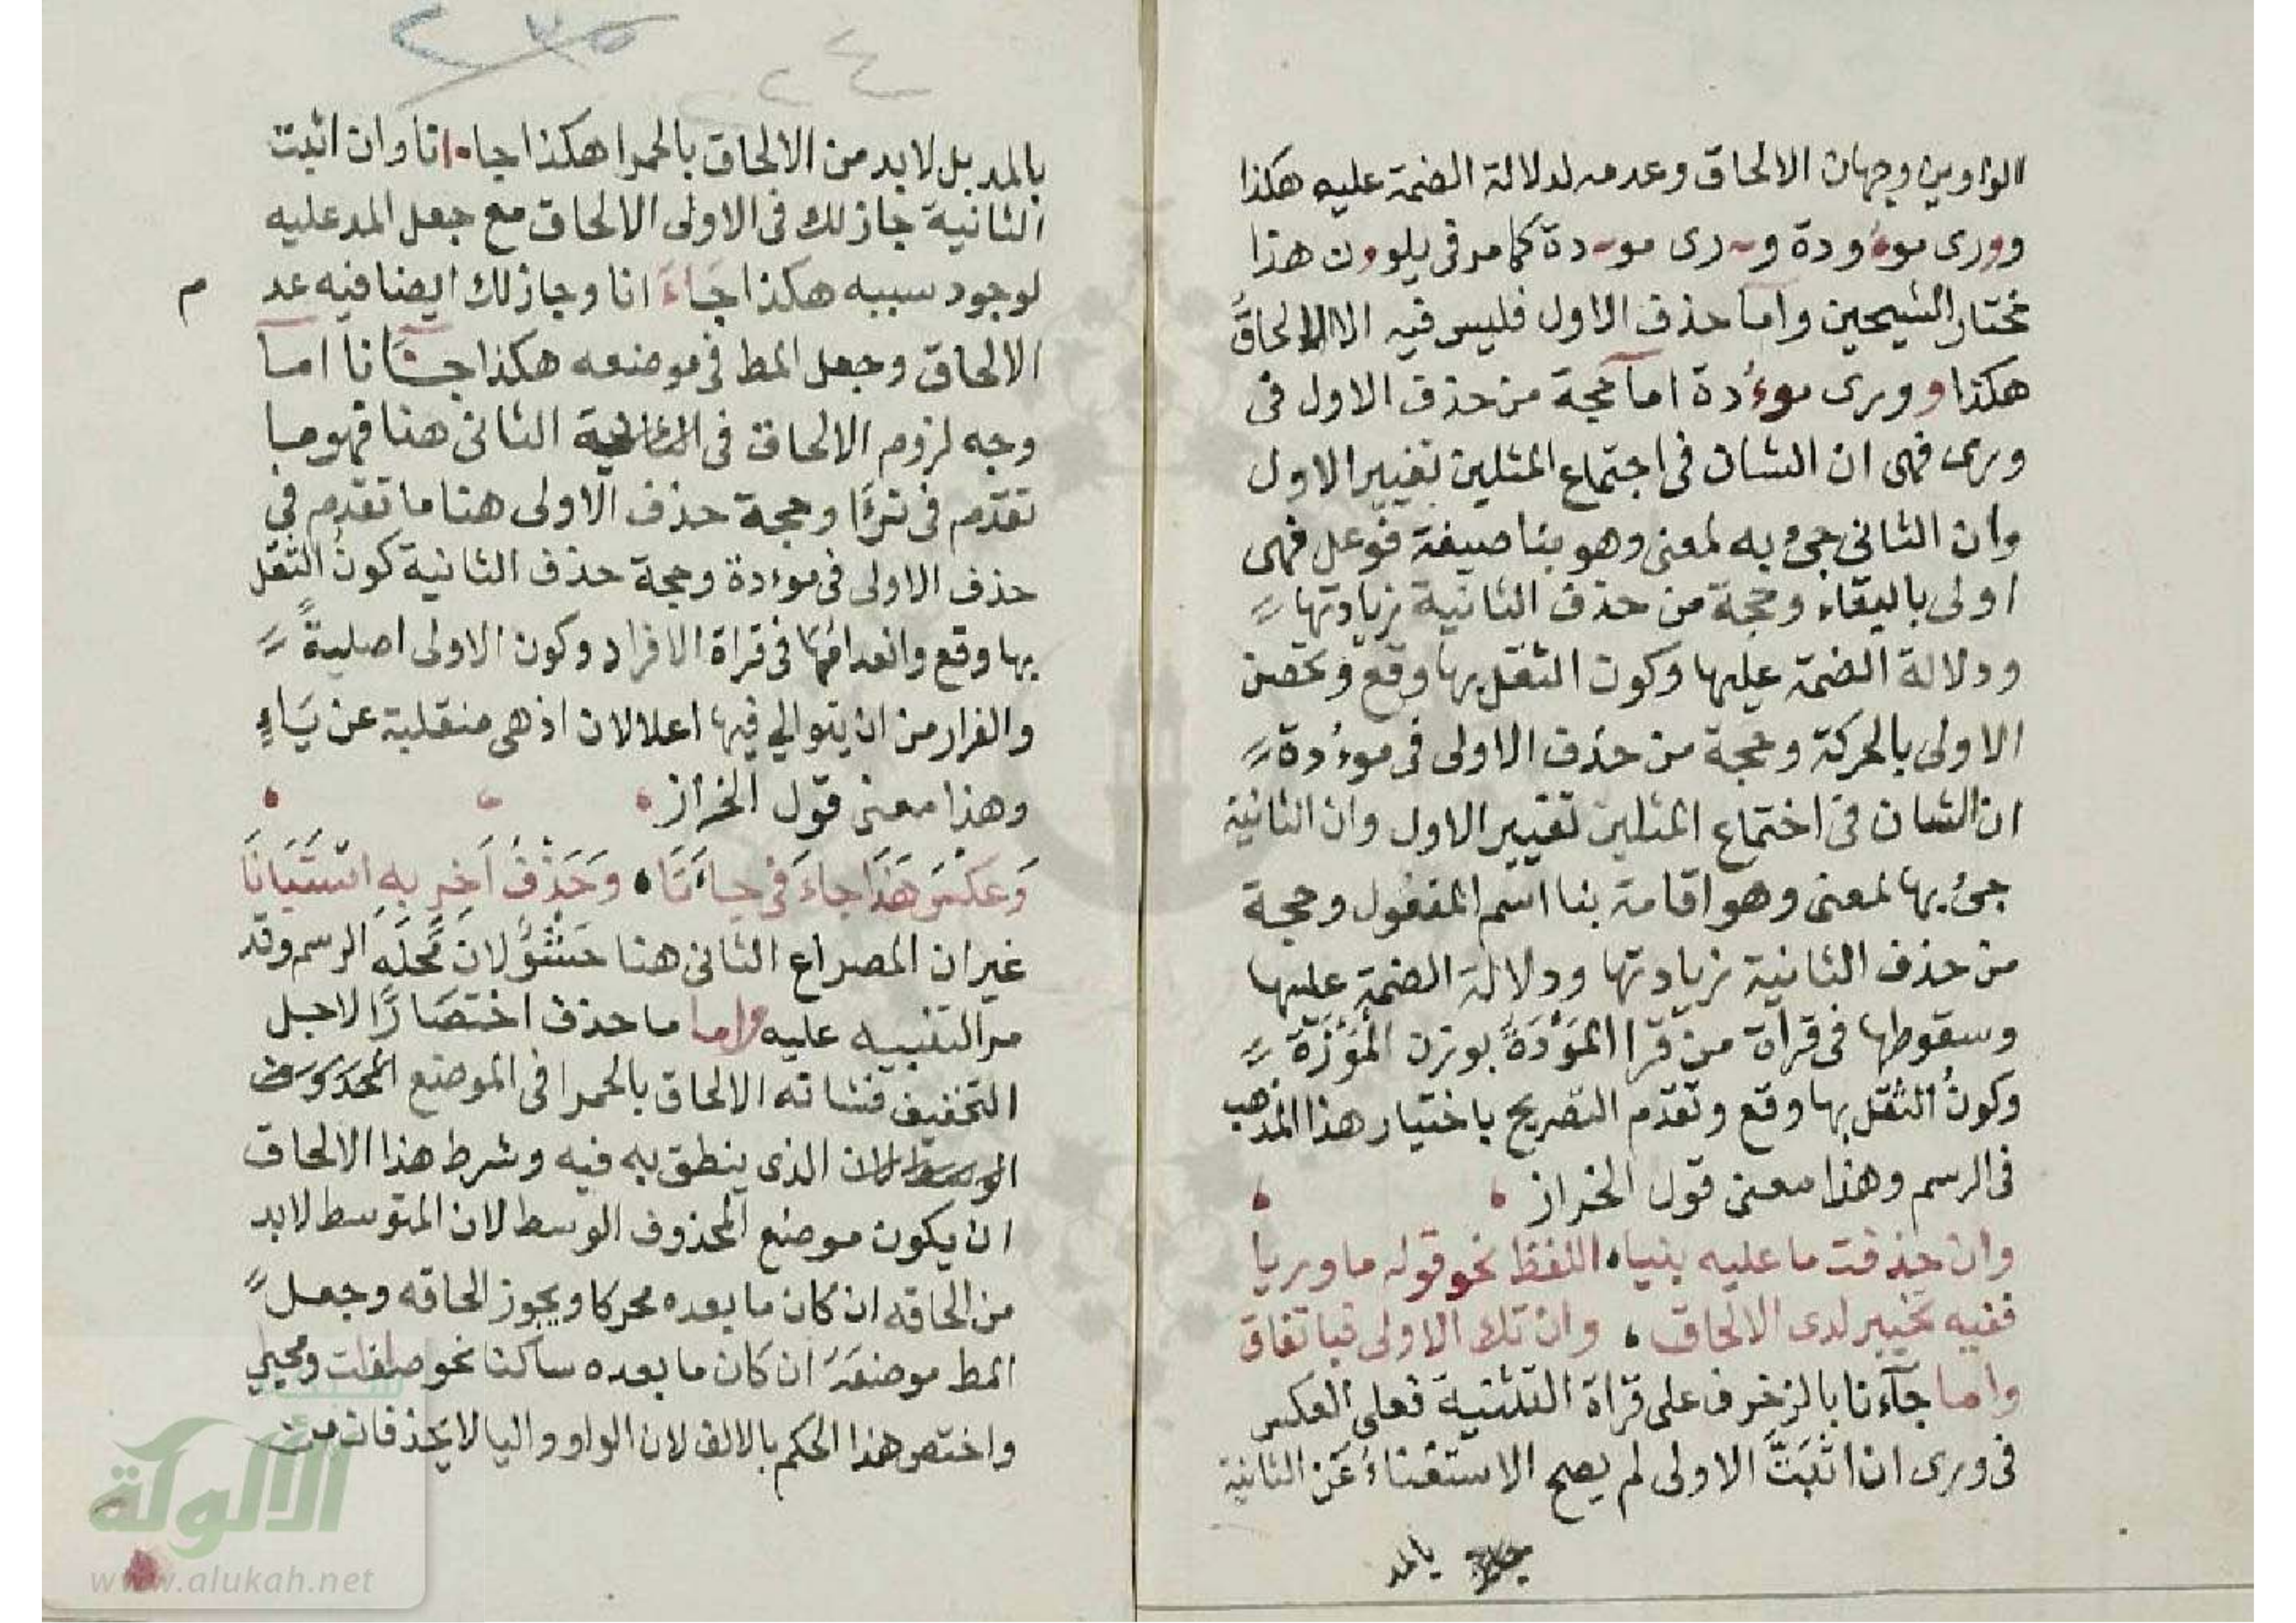 الواوين وجهان الالحاق وعدمه لدلالة الضمة عليه هكذا
وورى موءودة و؞رى مو؞دة كما مر فى يلوون هذا
مختار الشيخين واما حذف الاول فليس فيه الا الالحاق
هكذا وورى موءُدة اما حجة من حذف الاول فى
ورى فهى ان الشان فى اجتماع المثلين تغيير الاول
وان الثانى جئ به لمعنى وهو بنا صيغة فوعل فهى
اولى بالبقاء وحجة من حذف الثانية زيادتها
ودلالة الضمة عليها وكون الثقل بها وقع وتحصن
الاولى بالحركة وحجة من حذف الاولى فى موءُدة
ان الشان فى اختماع المثلين تغيير الاول وان الثانية
جئ بها لمعنى وهو اقامة بنا اسم المفعول وحجة
من حذف الثانية زيادتها ودلالة الضمة عليها
وسقوطها فى قراة من قرا المَوْدَةُ بوزن المَوْزَة
وكونُ الثقل بها وقع وتقدم التصريح باختيار هذا المذهب
فى الرسم وهذا معنى قول الخراز
وان حذفت ما عليه بنياه اللفظ نحو قوله ما وريا
ففيه تخيير لدى الالحاق ، وان تك الاولى فباتفاق
واما جآءنا بالزخرف على قراة التثنية فعلى العكس
فى ورى ان اثبَتَّ الاولى لم يصح الاستغناءُ عَن الثانية
بالمد
٢٣٥
٢٢٤
بالمد بل لابد من الالحاق بالحمرا هكذا جاءانا وان اثبت
الثانية جاز لك فى الاولى الالحاق مع جعل المد عليه
لوجود سببه هكذا جَاءَ انا وجاز لك ايضا فيه عد م
الالحاق وجعل المط فى موضعه هكذا جـــآنا اما
وجه لزوم الالحاق فى الثانى هنا فهو ما
تقدّم فى ترءَا وحجة حذف الاولى هنا ما تقدم فى
حذف الاولى فى موءدة وحجة حذف الثانية كونُ الثقل
بها وقع وانعدامُها فى قراة الافراد وكون الاولى اصليةً
والفرار من ان يتوالي فيها اعلالان اذ هى منقلبة عن يَاءٍ
وهذا معنى قول الخراز
وَعَكْسُ هَذَا جاءَ فى جاءَنَا ، وَحَذْفُ اَخِرٍ بِهِ اسْتَبَانَا
غير ان المصراع الثانى هنا حَشْوٌ لانَ محَلَّهِ الرسم وقد
مر التنبيه عليه واما ما حذف اختصَارًا لاجل
التخفيف فشانه الالحاق بالحمرا فى الموضع
الذى ينطق به فيه وشرط هذا الالحاق
ان يكون موضع المحذوف الوسط لان المتوسط لابد
من الحاقه ان كان ما بعده محركا ويجوز الحاقه وجعل
المط موضعَهَ ان كَان ما بعده ساكنا نحو صافات ومحياي
واختص هذا الحكم بالالف لان الواو واليا لا يحذفان من
شبكة
الألوكة
www.alukah.net